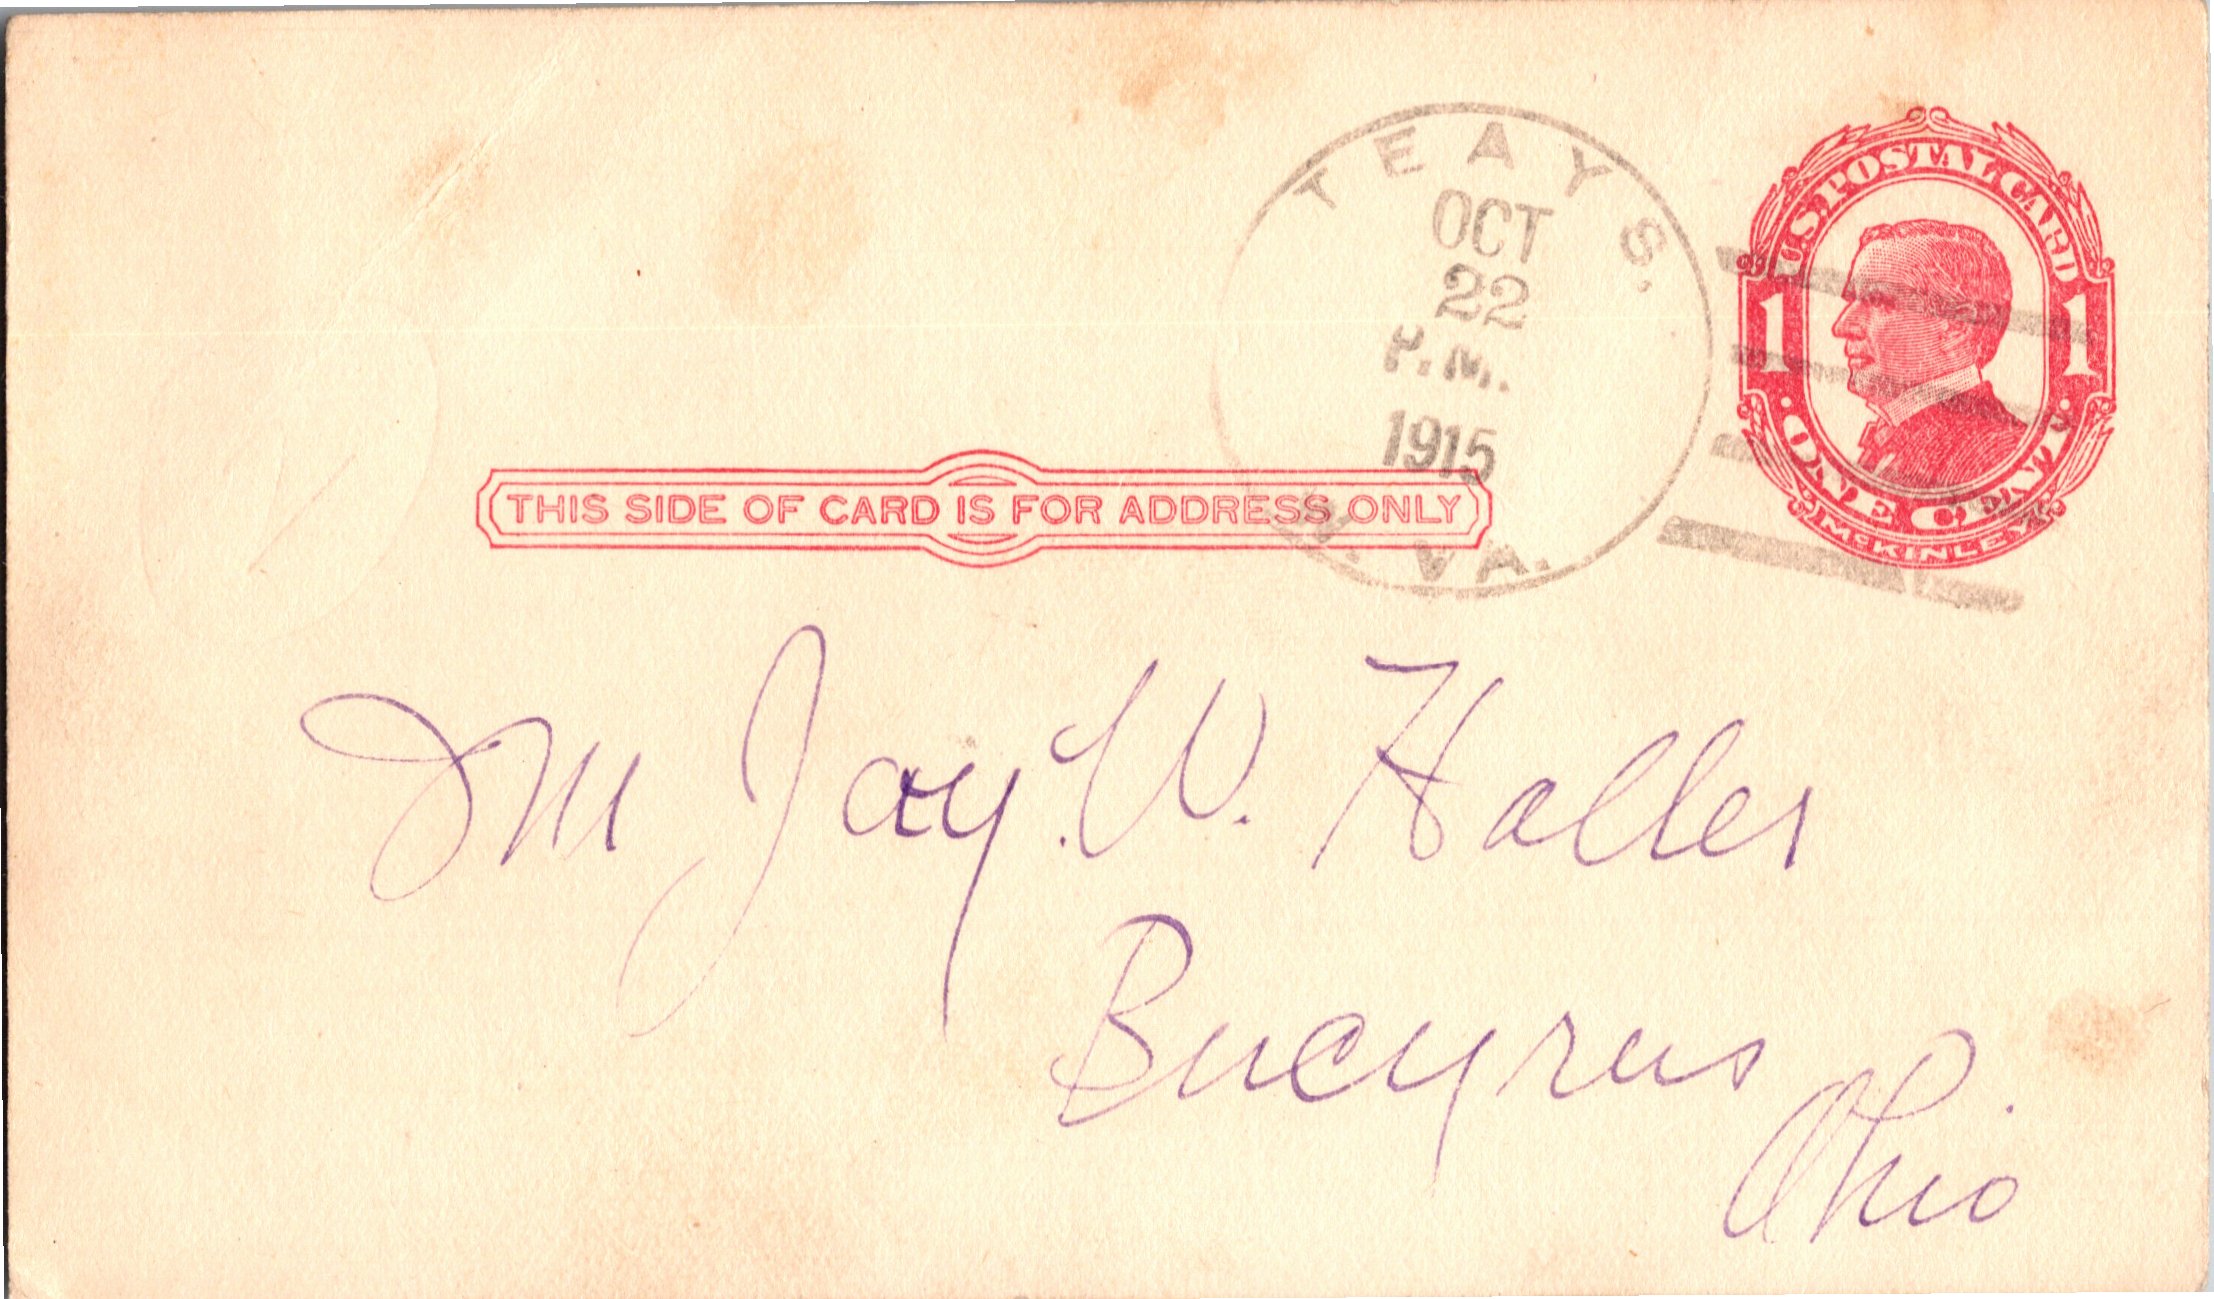 TEAYS.
OCT
22
P.M.
1915
W. VA.
U.S. POSTAL CARD
1 1
· ONE CENT ·
McKINLEY
THIS SIDE OF CARD IS FOR ADDRESS ONLY
M Jay. W. Holler
Bucyrus
Ohio